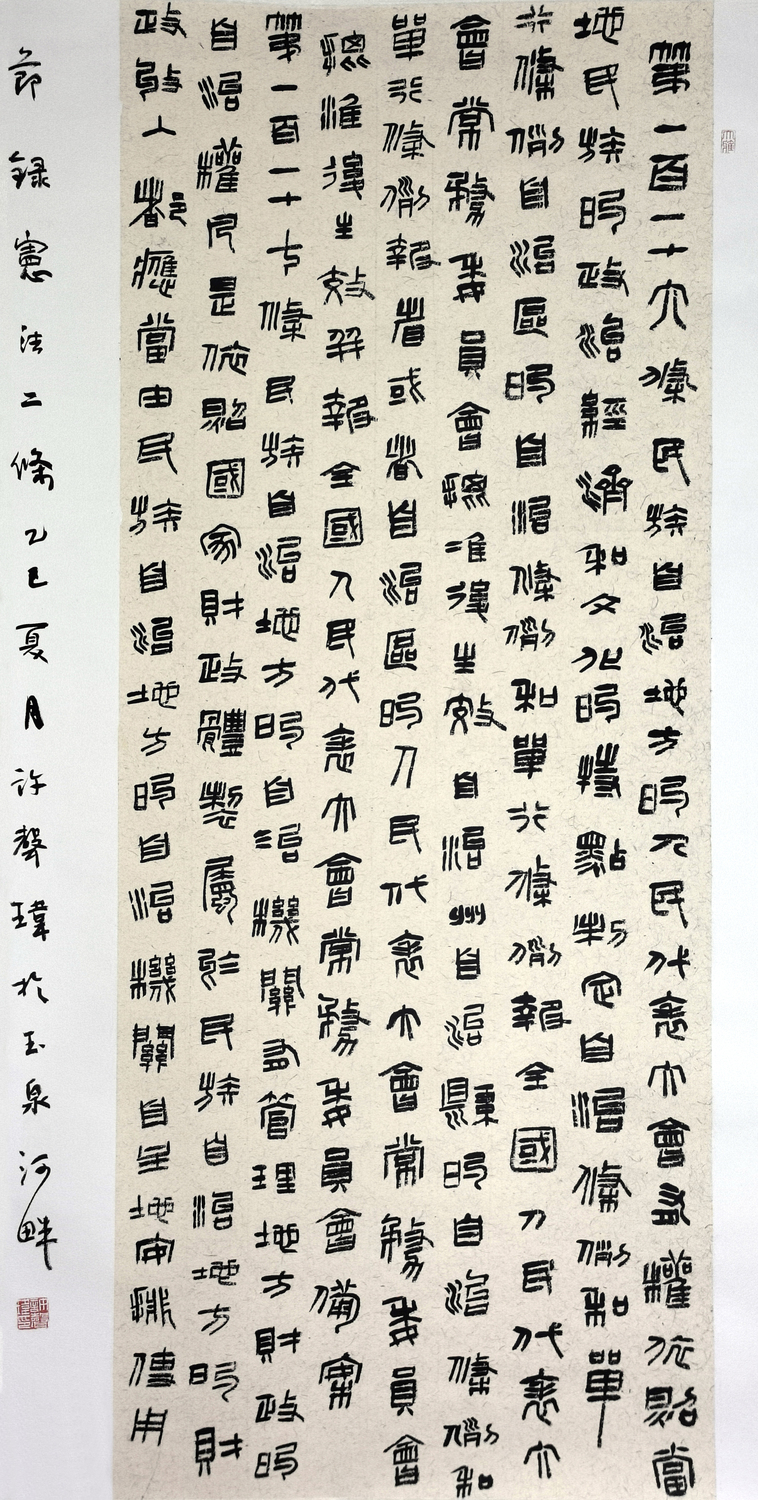 第一百一十六條民族自治地方的人民代表大會有權依照當
地民族的政治經濟和文化的特點制定自治條例和單
行條例自治區的自治條例和單行條例報全國人民代表大
會常務委員會批准後生效自治州自治縣的自治條例和
單行條例報省或者自治區的人民代表大會常務委員會
批准後生效并報全國人民代表大會常務委員會備案
第一百一十七條民族自治地方的自治機關有管理地方財政的
自治權凡是依照國家財政體製屬於民族自治地方的財
政收入都應當由民族自治地方的自治機關自主地安排使用
節錄憲法二條乙巳夏月許聲瑋於玉泉河畔